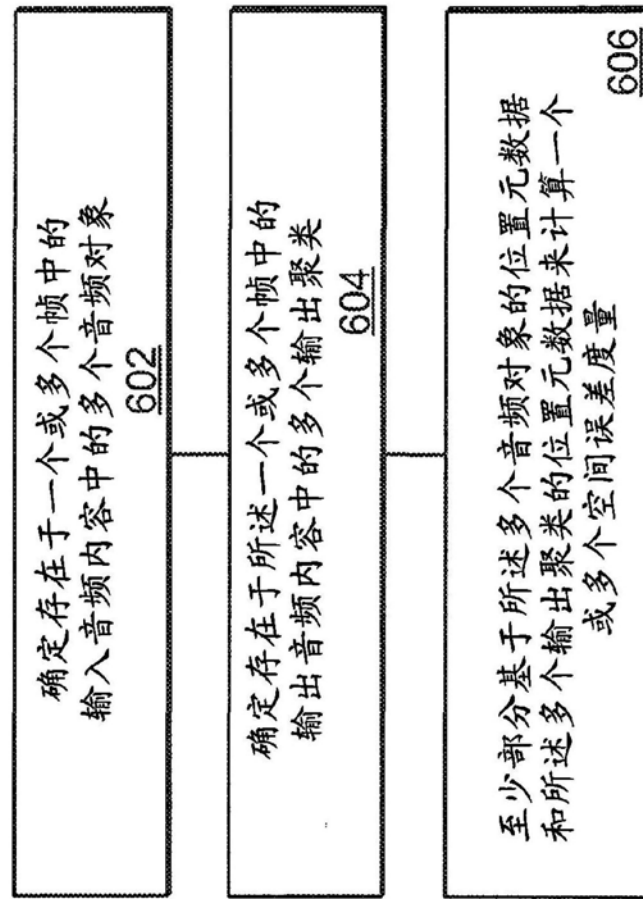 确定存在于一个或多个帧中的
输入音频内容中的多个音频对象
602
确定存在于所述一个或多个帧中的
输出音频内容中的多个输出聚类
604
至少部分基于所述多个音频对象的位置元数据
和所述多个输出聚类的位置元数据来计算一个
或多个空间误差度量
606